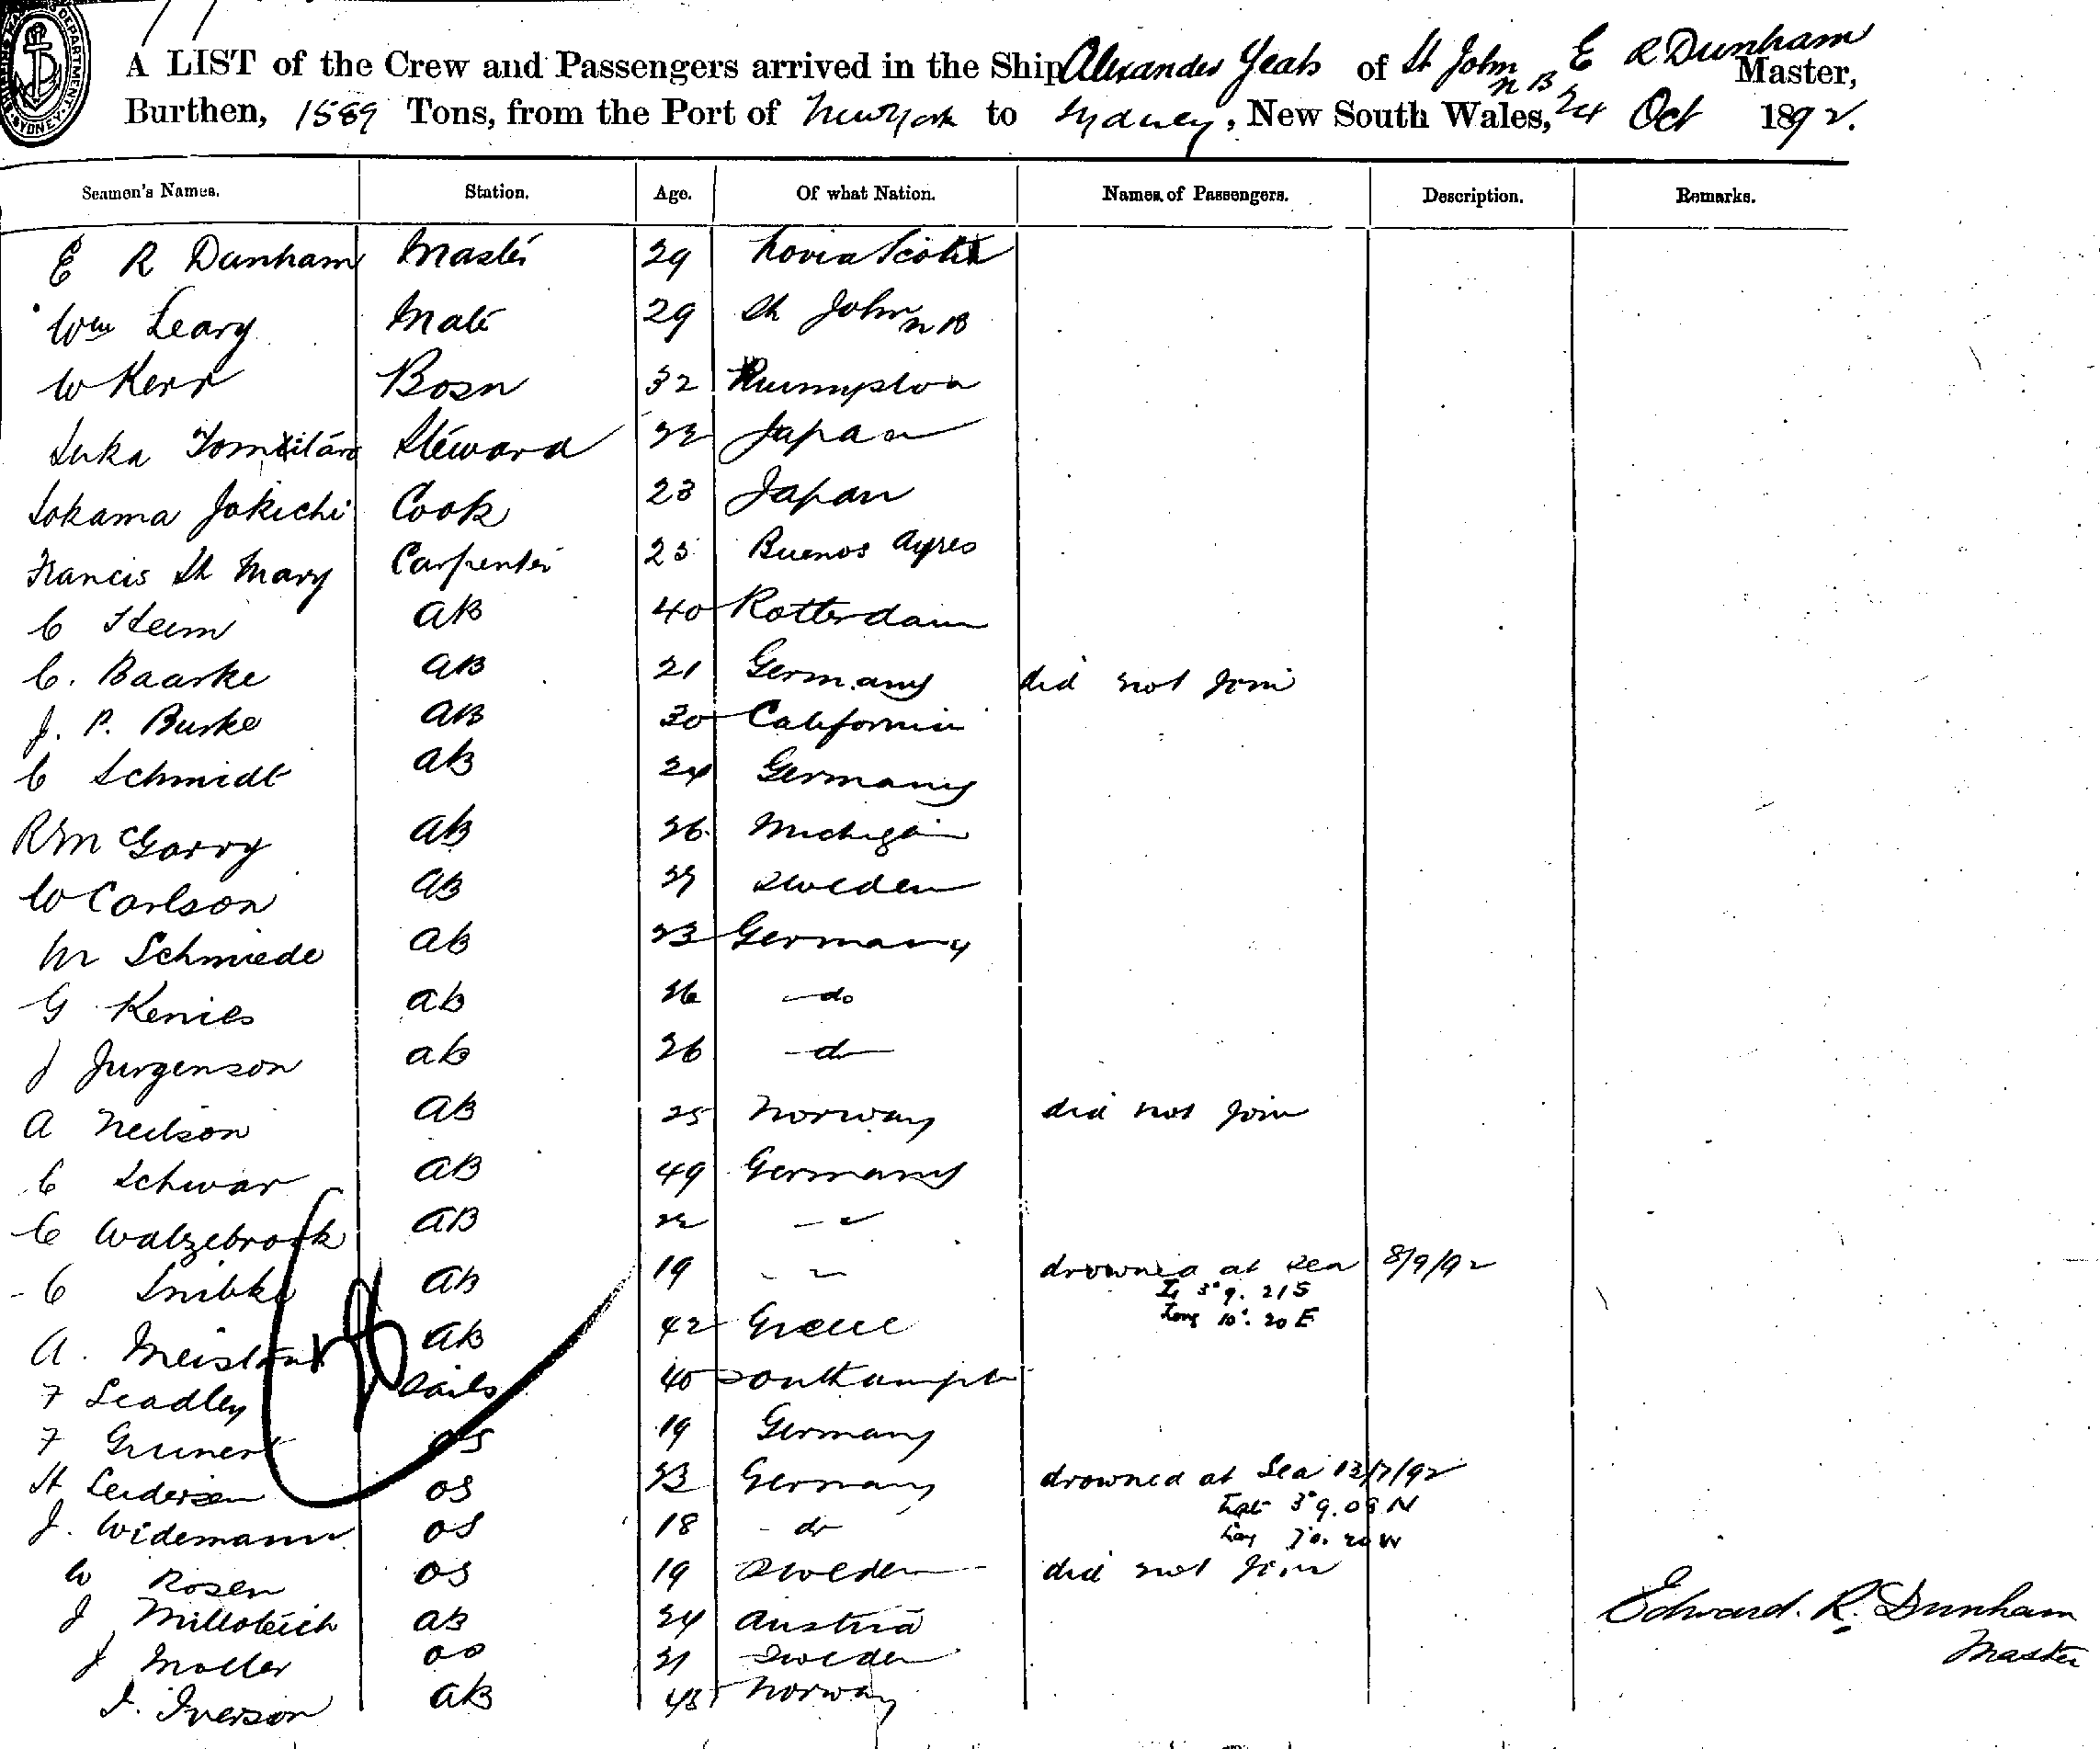 A LIST of the Crew and Passengers arrived in the Ship Alexander Yeats of St John N B E R Dunham Master,
Burthen, 1589 Tons, from the Port of New York to Sydney, New South Wales, 24 Oct 1892.
Seamen's Names. Station. Age. Of what Nation. Names of Passengers. Description. Remarks.
E R Dunham Master 29 Novia Scotia
Wm Leary Mate 29 St John N B
W Kerr Bosn 32
Suka Steward Japan
Sokama Jokichi Cook 23 Japan
Francis St Mary Carpenter 25 Buenos Ayres
C AB 40 Rotterdam
C. Baarke AB 21 Germany did not join
J. P. Burke AB 30 California
C Schmidt AB 24 Germany
R McGarry AB 26 Michigan
W Carlson AB Sweden
M Schmiede AB 23 Germany
G AB 26 do
J Jurgenson AB 26 do
A Neilson AB 25 Norway did not join
C Schwar AB 49 Germany
C Walzebrook AB 22
C AB 19 drowned at sea 8/9/92
Long 10°. 20 E
A. AB 42 Greece
F Leadley Sails 40 Southampton
F Grunert OS 19 Germany
OS 23 Germany drowned at Sea 13/7/92
Lat 3°9. 09 N
J. Widemann OS 18 do
W Rosen OS 19 Sweden did not join
J AB 24 Austria
J Moller OS 21 Sweden
J. Iverson AB 43 Norway
Edward. R. Dunham
Master